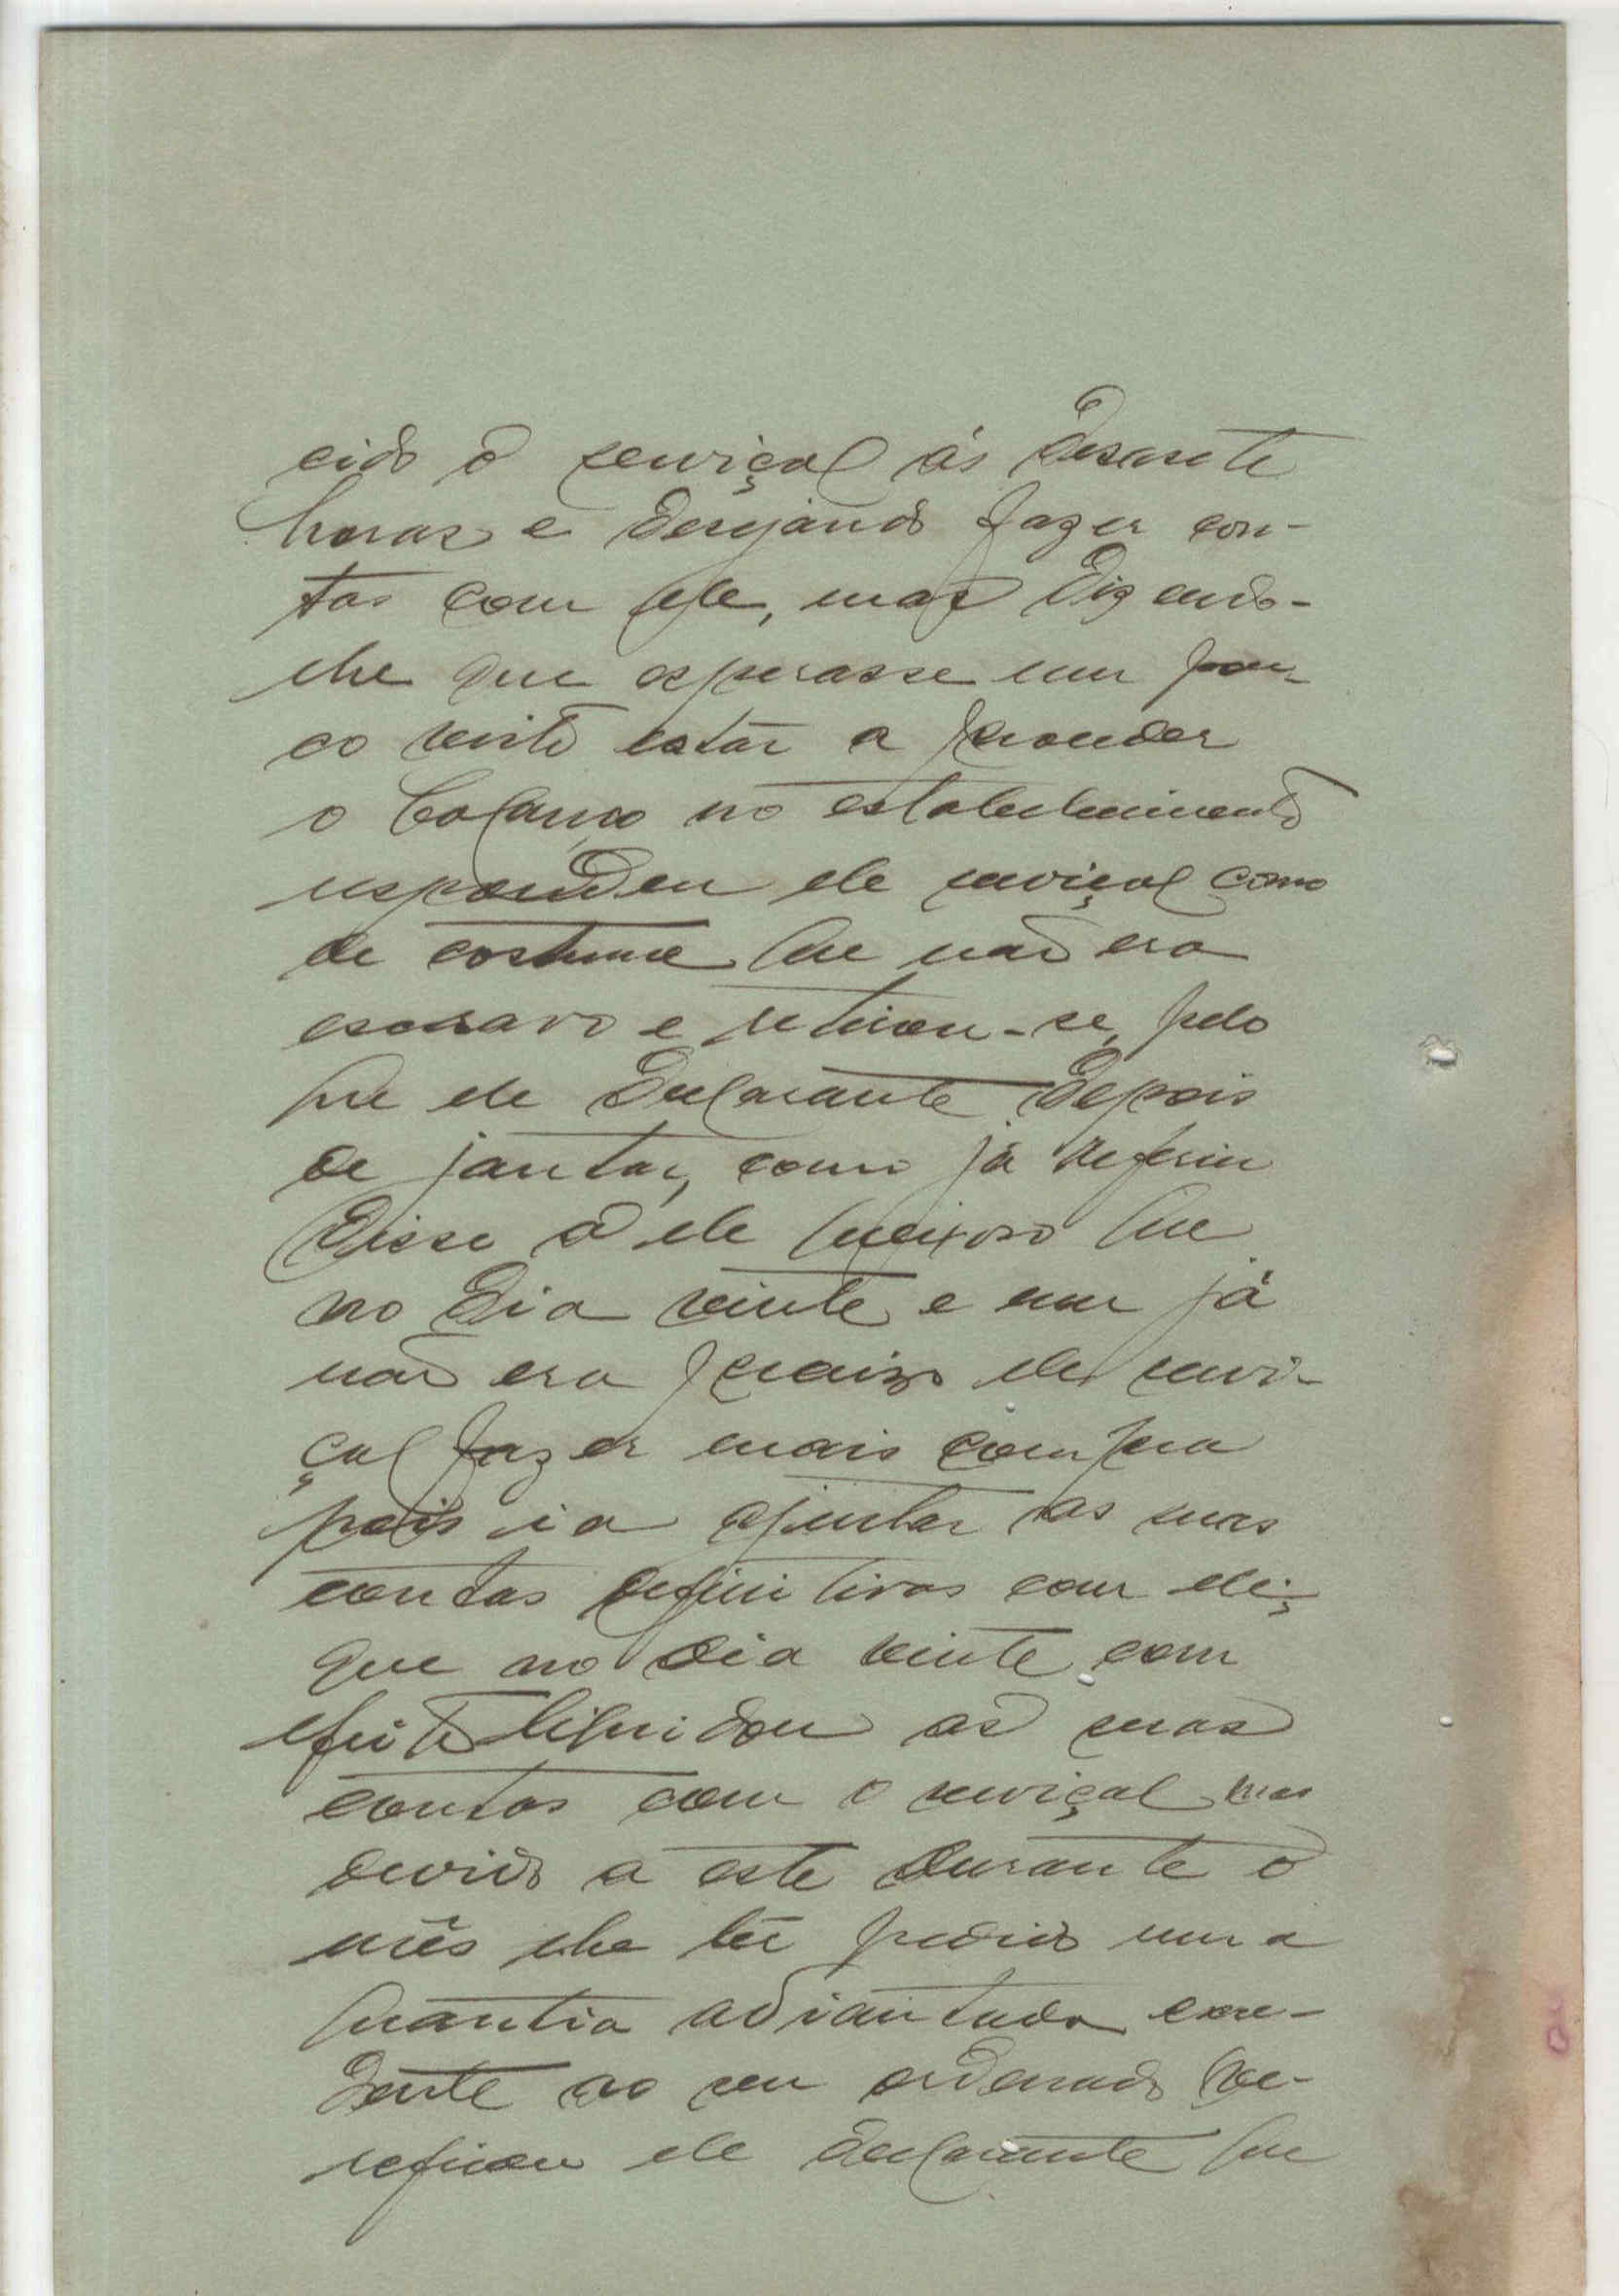 cido o serviçal ás desasete
horas e desejando fazer con-
tas com ele, mas dizendo-
lhe que esperasse um pou-
co visto estar a proceder
o balanço no estabelecimento
respondeu ele serviçal como
de costume que não era
escravo e retirou-se, pelo
que ele declarante depois
de jantar, como já referiu
disse a ele queixoso que
no dia vinte e um já
não era preciso ele servi-
çal fazer mais compra
pois ia ajustar as suas
contas definitivas com ele;
que no dia vinte com
efeito liquidou as suas
contas com o serviçal mas
devido a este durante o
mês lhe ter pedido uma
quantia adiantada exce-
dente ao seu ordenado ve-
reficou ele declarante que